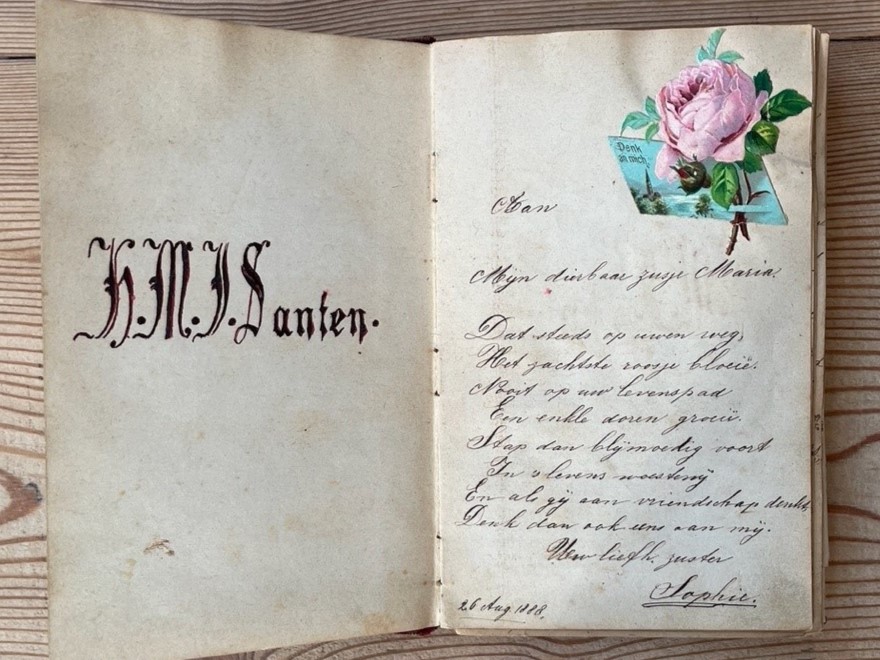 H.M.J. Santen.
Denk
an mich.
Aan
Mijn dierbaar zusje Maria.
Dat steeds op uwen weg,
Het zachtste roosje bloeie.
Nooit op uw levenspad
Een enkle doren groeie.
Stap dan blijmoedig voort
In 's levens woestenij
En als gij aan vriendschap denkt,
Denk dan ook eens aan mij.
Uw liefh. zuster
Sophie.
26 Aug. 1888.